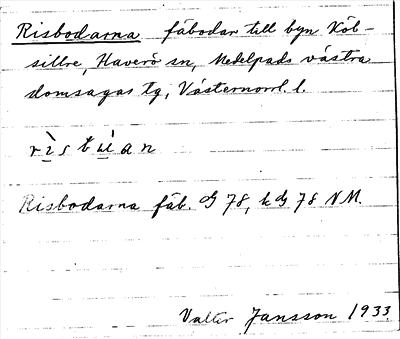 Risbodarna fäbodar till byn Köl-
sillre, Haverö sn, Medelpads västra
domsagas tg, Västernorrl. l.
Risbodarna fäb. G 78, k G 78 NM.
Valter Jansson 1933